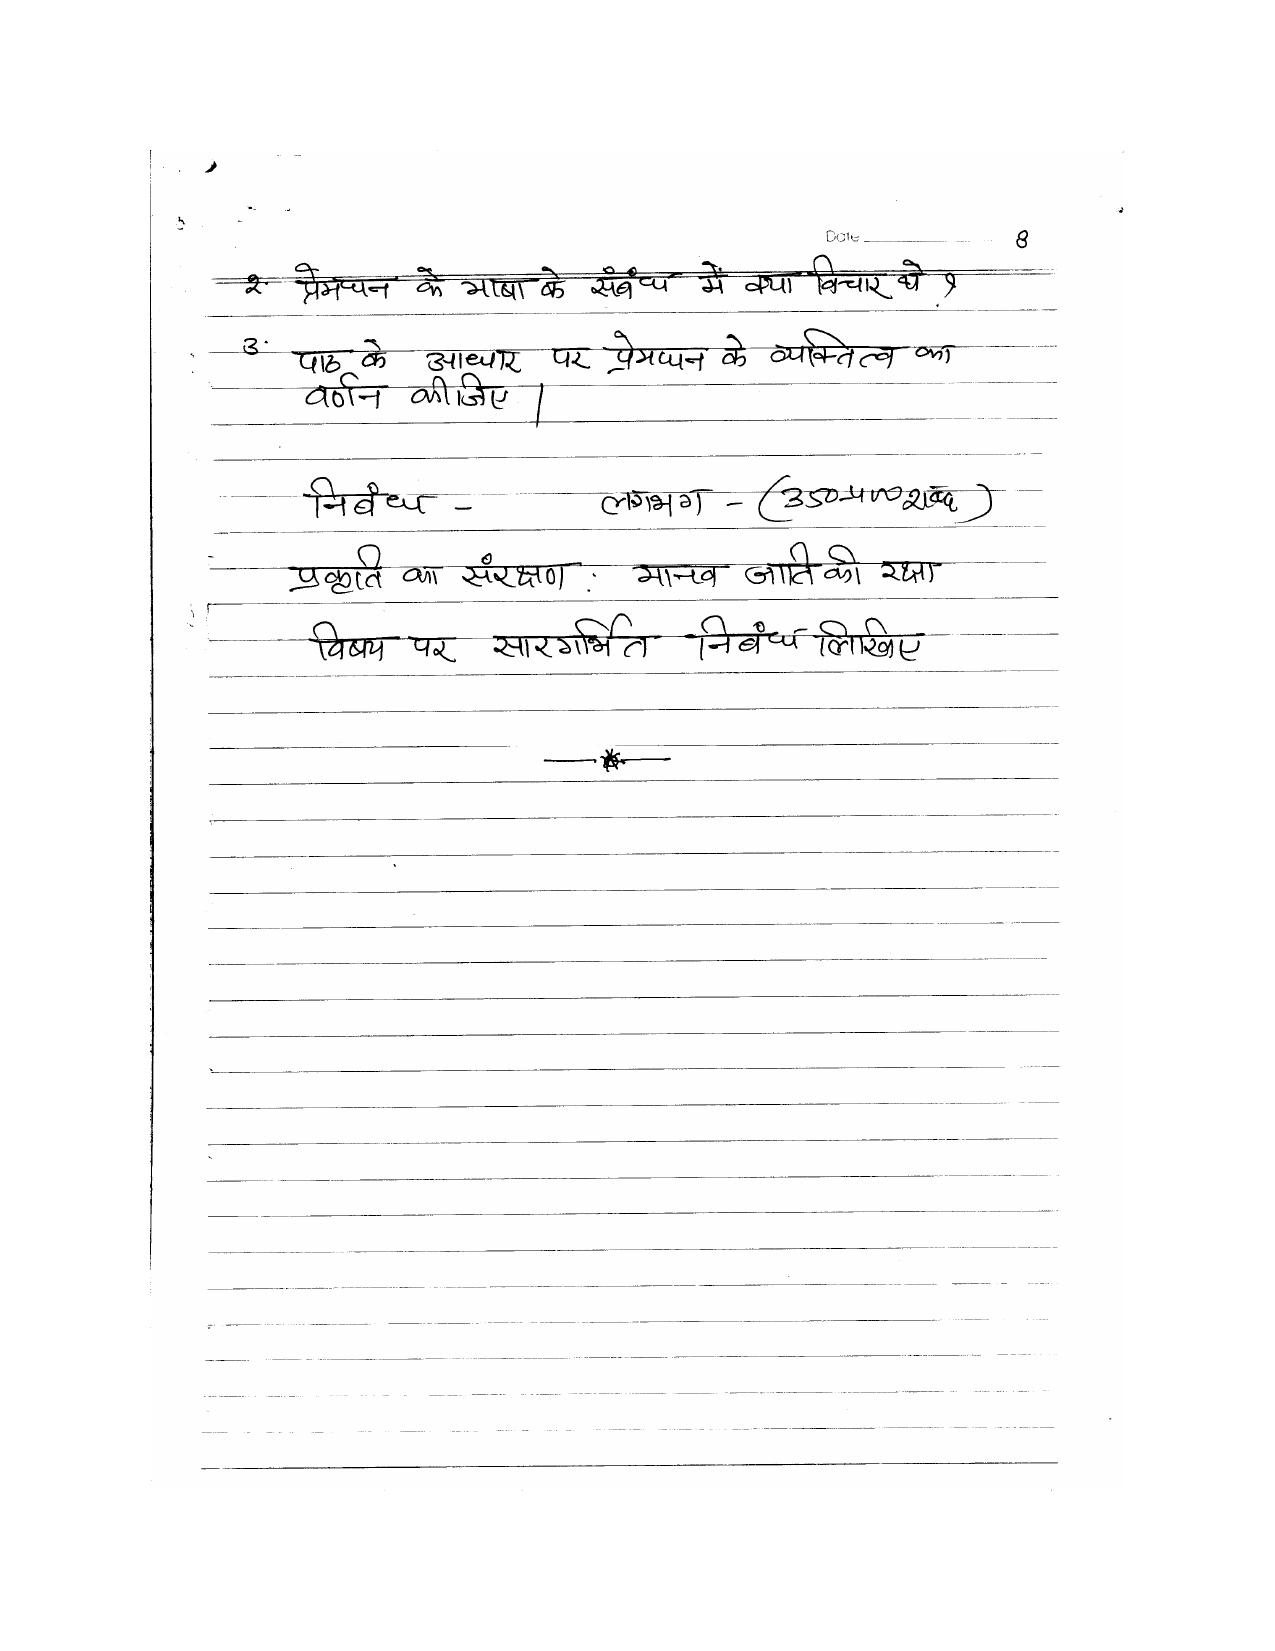 Date 8
२. प्रेमघन के भाषा के संबंध में क्या विचार थे ?
3. पाठ के आधार पर प्रेमघन के व्यक्तित्व का
वर्णन कीजिए |
निबंध - लगभग - (350-400 शब्द)
प्रकृति का संरक्षण : मानव जाति की रक्षा
विषय पर सारगर्भित निबंध लिखिए